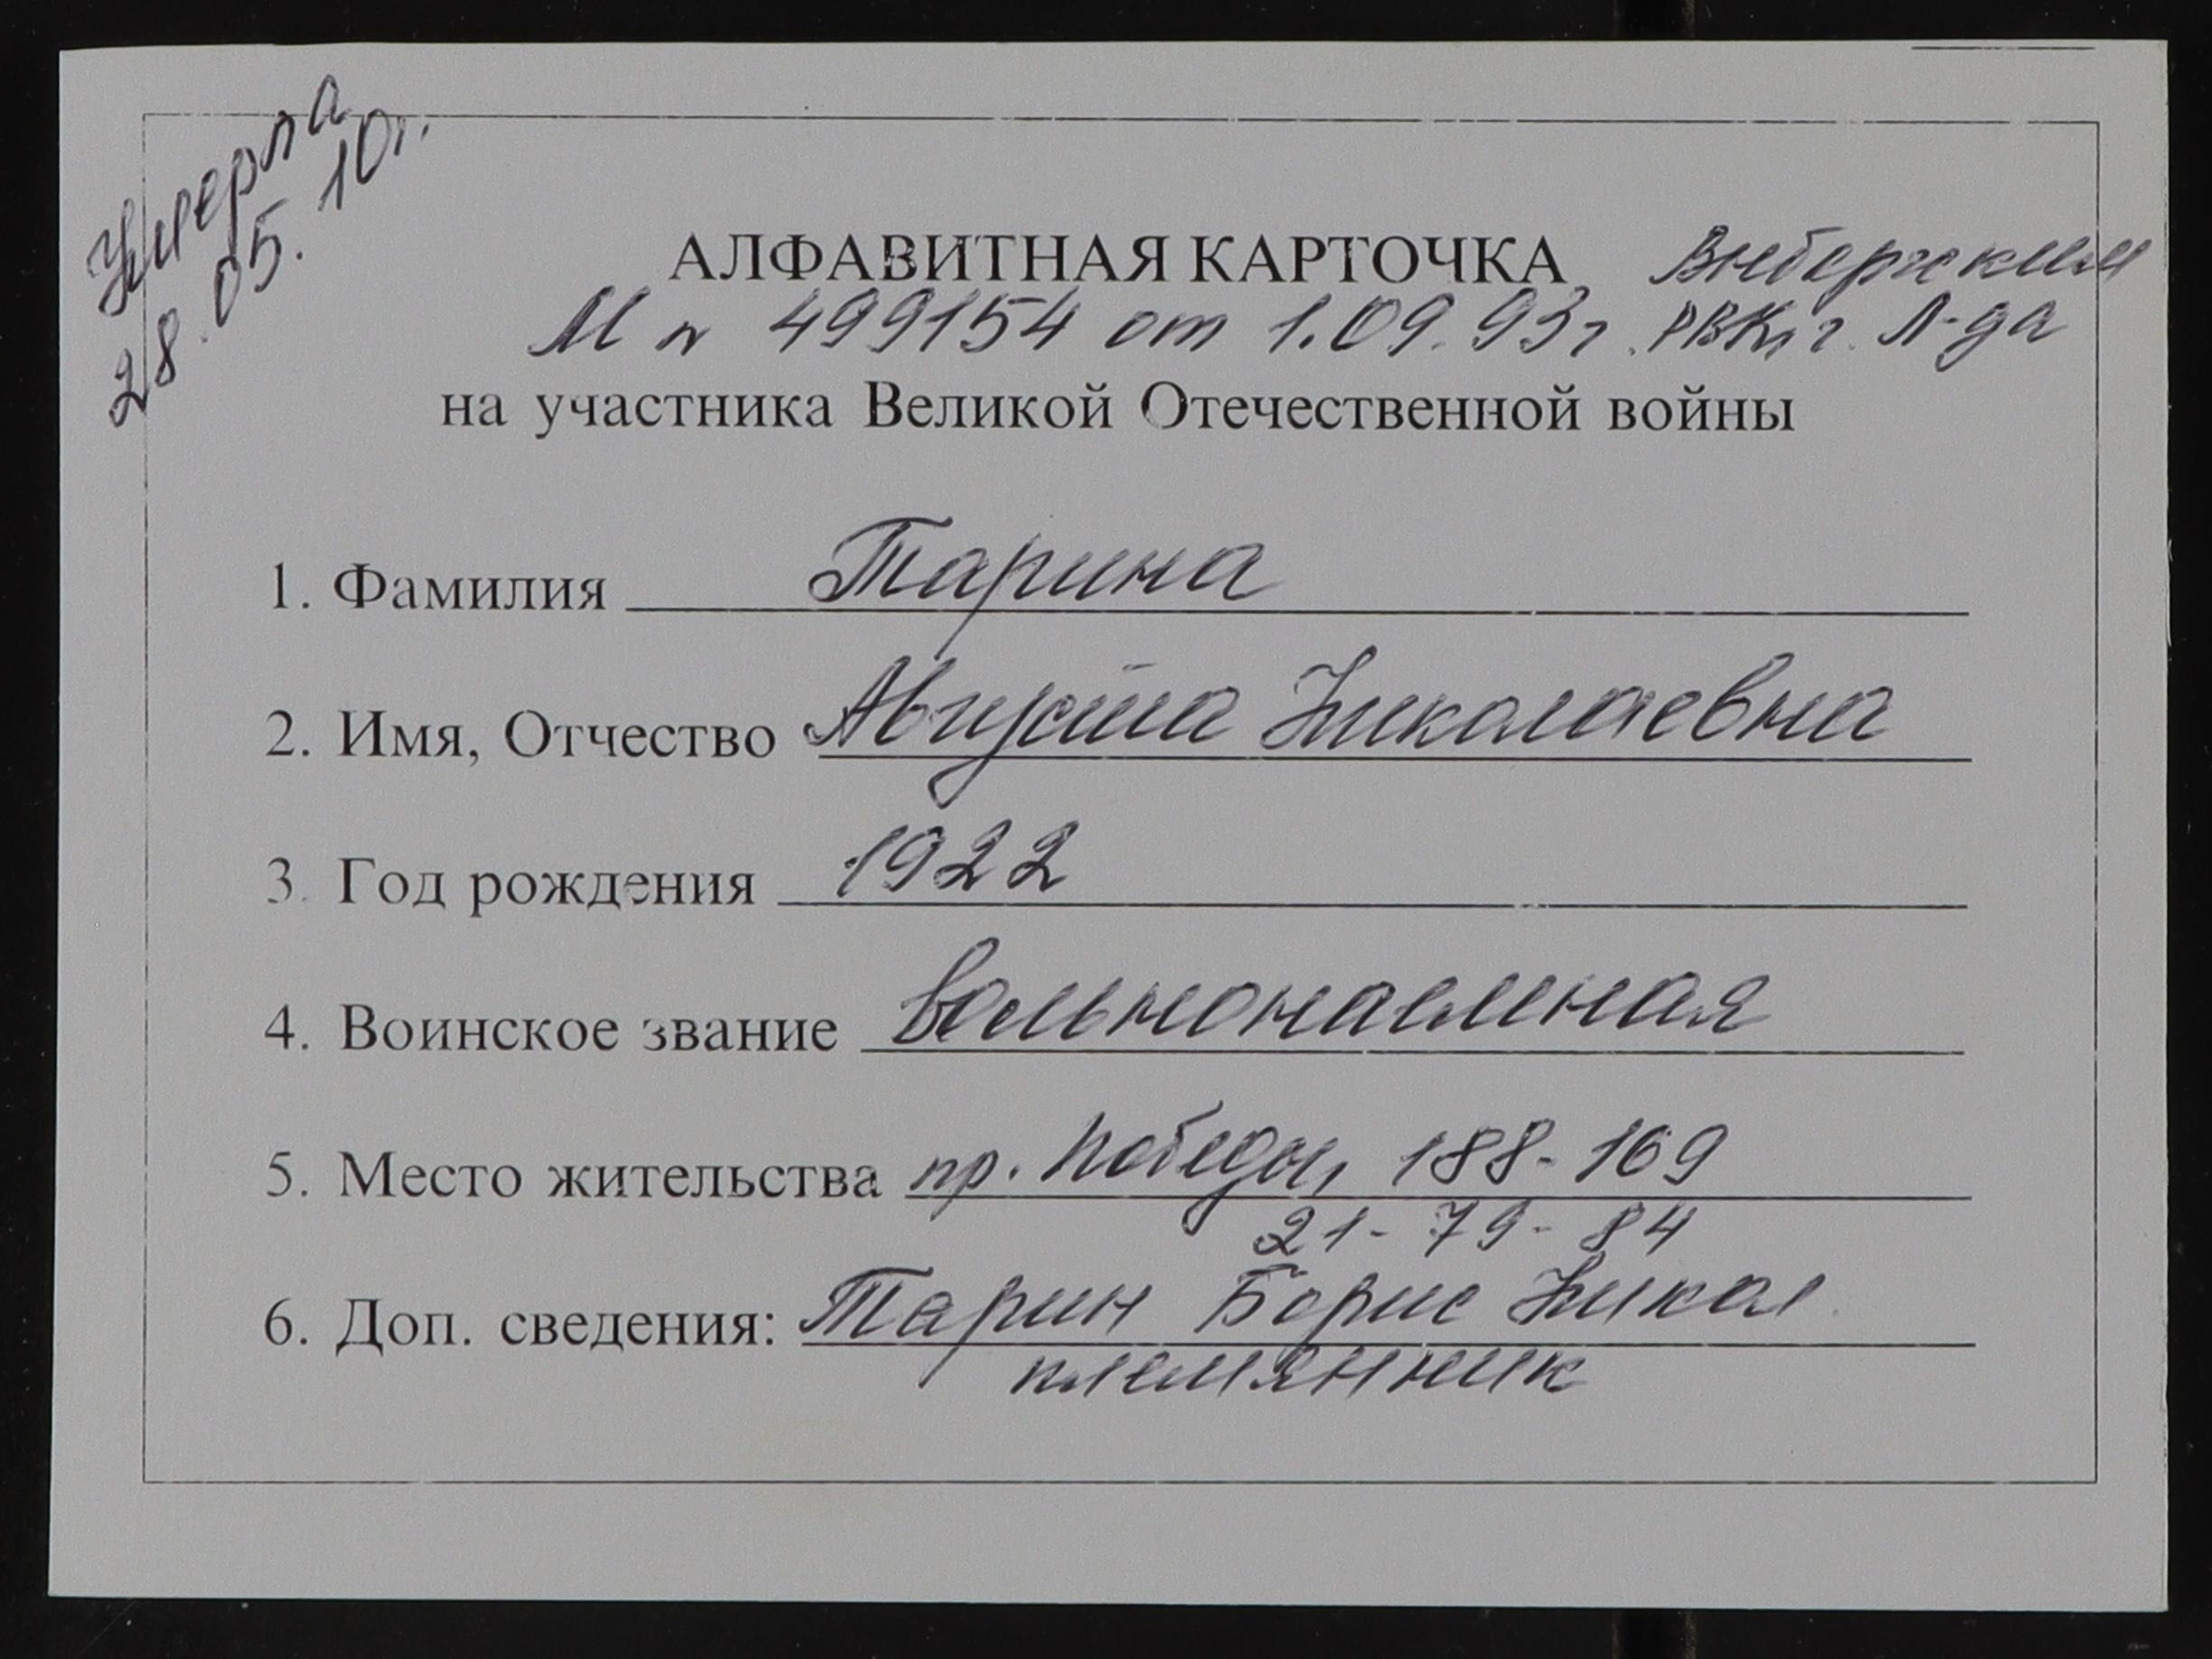 Умерла
28.05.10г.
АЛФАВИТНАЯ КАРТОЧКА Выборгским
М № 499154 от 1.09.93г. РВК, г. Л-да
на участника Великой Отечественной войны
1. Фамилия Тарина
2. Имя, Отчество Августа Николаевна
3. Год рождения 1922
4. Воинское звание вольнонаемная
5. Место жительства пр. Победы, 188-169
21-79-84
6. Доп. сведения: Тарин Борис Никол.
племянник